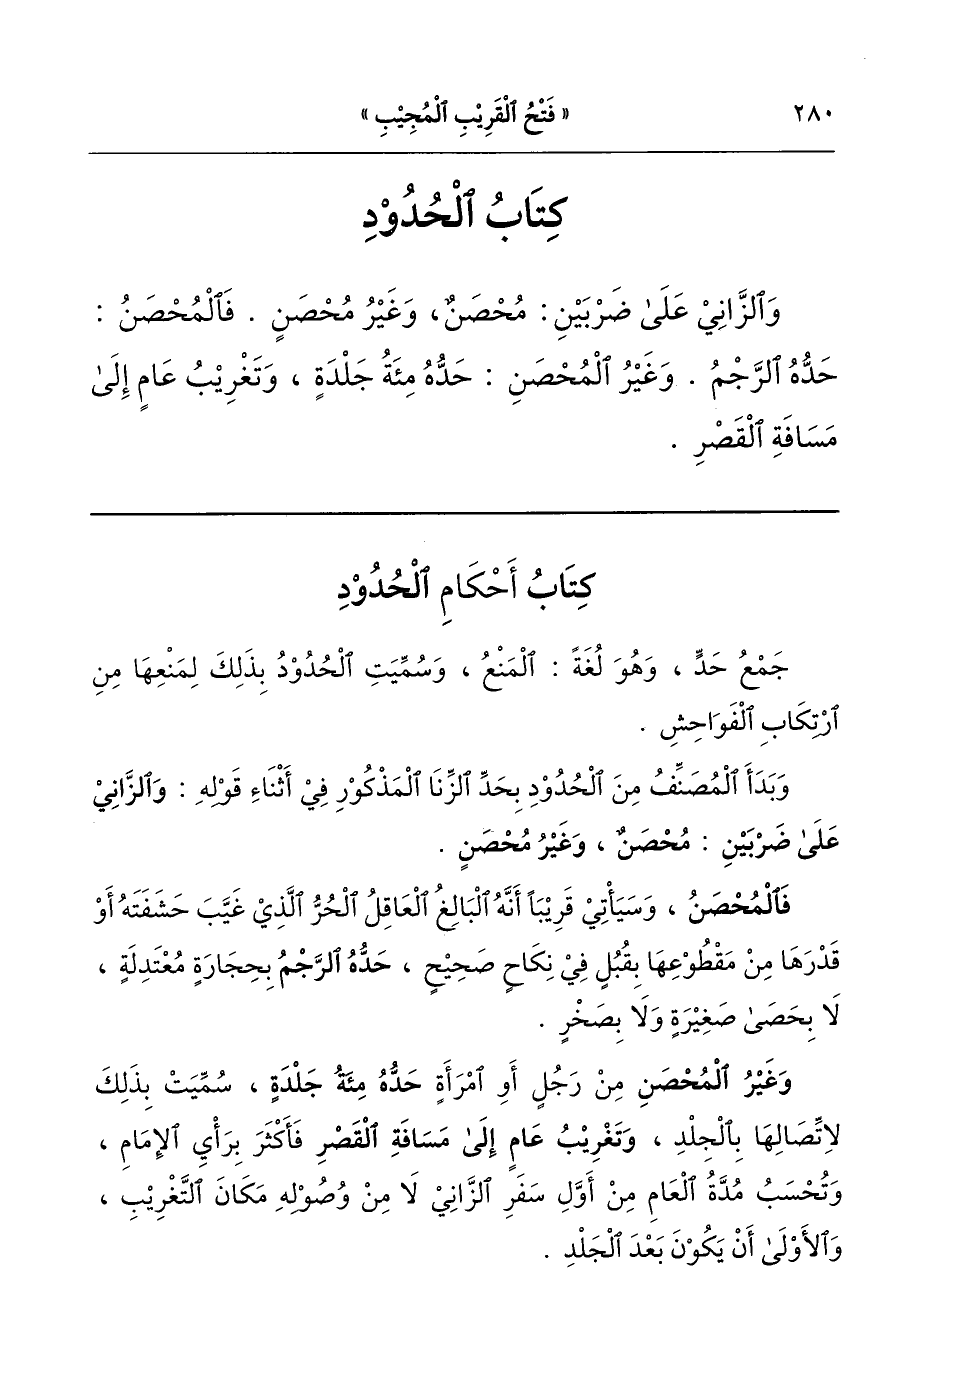 ٢٨٠ « فَتْحُ ٱلْقَرِيْبِ ٱلْمُجِيْبِ »
كِتَابُ ٱلْحُدُوْدِ
وَٱلزَّانِيْ عَلَىٰ ضَرْبَيْنِ : مُحْصَنٌ ، وَغَيْرُ مُحْصَنٍ . فَٱلْمُحْصَنُ :
حَدُّهُ ٱلرَّجْمُ . وَغَيْرُ ٱلْمُحْصَنِ : حَدُّهُ مِئَةُ جَلْدَةٍ ، وَتَغْرِيْبُ عَامٍ إِلَىٰ
مَسَافَةِ ٱلْقَصْرِ .
كِتَابُ أَحْكَامِ ٱلْحُدُوْدِ
جَمْعُ حَدٍّ ، وَهُوَ لُغَةً : ٱلْمَنْعُ ، وَسُمِّيَتِ ٱلْحُدُوْدُ بِذَلِكَ لِمَنْعِهَا مِنِ
ٱرْتِكَابِ ٱلْفَوَاحِشِ .
وَبَدَأَ ٱلْمُصَنِّفُ مِنَ ٱلْحُدُوْدِ بِحَدِّ ٱلزِّنَا ٱلْمَذْكُوْرِ فِيْ أَثْنَاءِ قَوْلِهِ : وَٱلزَّانِيْ
عَلَىٰ ضَرْبَيْنِ : مُحْصَنٌ ، وَغَيْرُ مُحْصَنٍ .
فَٱلْمُحْصَنُ ، وَسَيَأْتِيْ قَرِيْبَاً أَنَّهُ ٱلْبَالِغُ ٱلْعَاقِلُ ٱلْحُرُّ ٱلَّذِيْ غَيَّبَ حَشَفَتَهُ أَوْ
قَدْرَهَا مِنْ مَقْطُوْعِهَا بِقُبُلٍ فِيْ نِكَاحٍ صَحِيْحٍ ، حَدُّهُ ٱلرَّجْمُ بِحِجَارَةٍ مُعْتَدِلَةٍ ،
لَا بِحَصَىٰ صَغِيْرَةٍ وَلَا بِصَخْرٍ .
وَغَيْرُ ٱلْمُحْصَنِ مِنْ رَجُلٍ أَوِ ٱمْرَأَةٍ حَدُّهُ مِئَةُ جَلْدَةٍ ، سُمِّيَتْ بِذَلِكَ
لِاتِّصَالِهَا بِٱلْجِلْدِ ، وَتَغْرِيْبُ عَامٍ إِلَىٰ مَسَافَةِ ٱلْقَصْرِ فَأَكْثَرَ بِرَأْيِ ٱلإِمَامِ ،
وَتُحْسَبُ مُدَّةُ ٱلْعَامِ مِنْ أَوَّلِ سَفَرِ ٱلزَّانِيْ لَا مِنْ وُصُوْلِهِ مَكَانَ ٱلتَّغْرِيْبِ ،
وَٱلأَوْلَىٰ أَنْ يَكُوْنَ بَعْدَ ٱلْجَلْدِ .